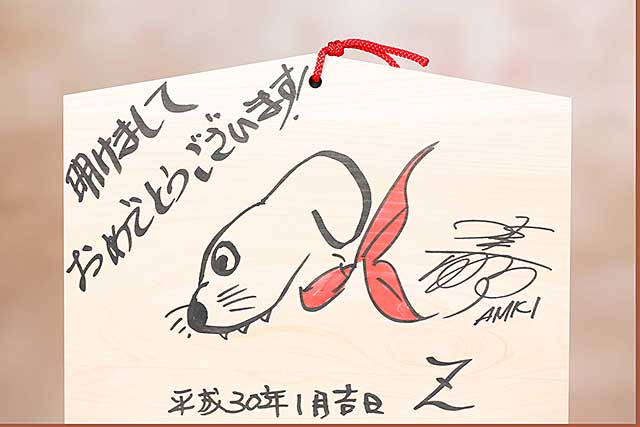 明けまして
おめでとうございます!
AMKI
平成30年1月吉日
Z